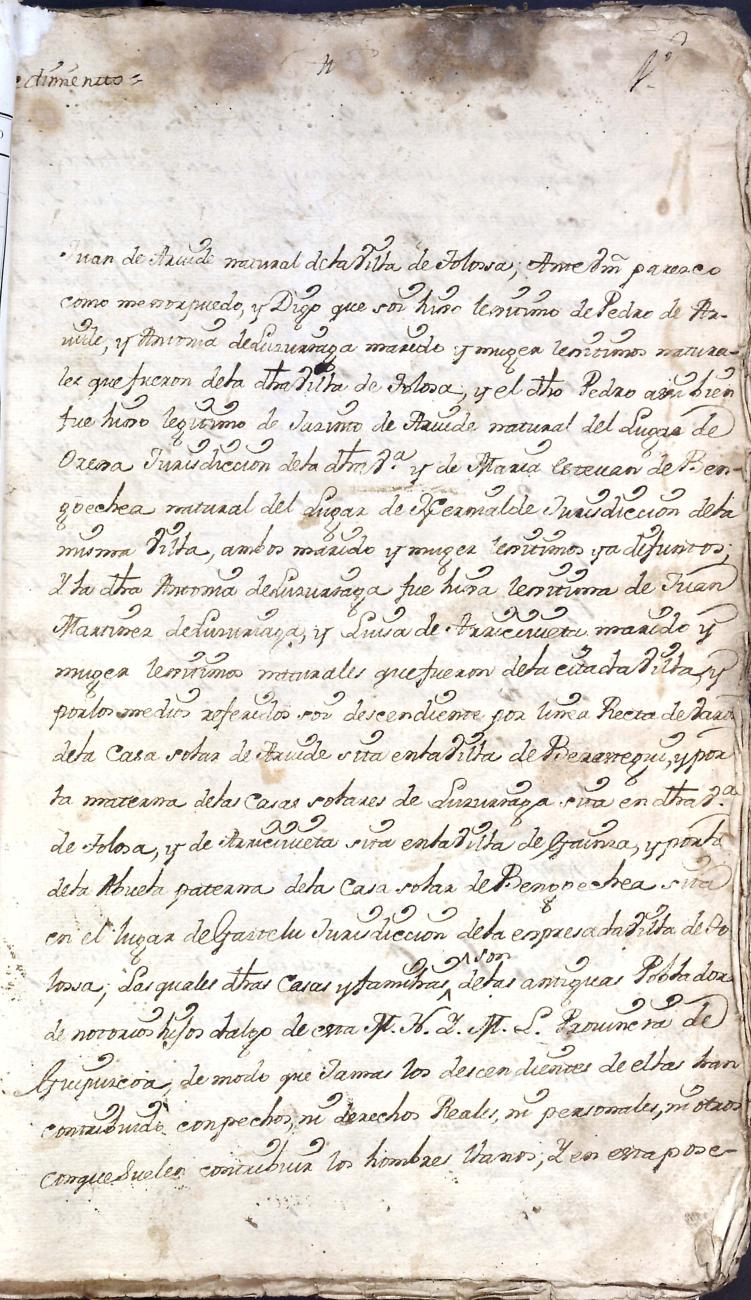 edimento=
1º
Juan de Aruide natural dela Villa de Tolossa, Ante Vm parezco
como mejor puedo, y Digo que soi hijo lexitimo de Pedro de Ar-
uide, y Antonia de Luzurraga marido y muger lexitimos natura-
les que fueron dela dha Villa de Tolosa, y el dho Pedro assi bien
fue hijo legitimo de Jazinto de Aruide natural del Lugar de
Orexa Jurisdiccion dela dha Vª y de Maria Estevan de Ben-
goechea natural del Lugar de Hernialde Jurisdiccion dela
misma Villa, ambos marido y muger lexitimos ya difuntos;
Y la dha Antonia de Luzurraga fue hixa lexitima de Juan
Martinez de Luzuriaga, y Luisa de Arrecivieta marido y
muger lexitimos naturales que fueron dela citada Villa, y
por los medios referidos soi descendiente por linea Recta de Varon
dela Casa solar de Aruide sita enla Villa de Berastegui, y por
la materna delas Casas solares de Luzurraga sita en dha Vª
de Tolosa, y de Arrecivieta sita enla Villa de Gainza, y por la
dela Abuela paterna dela Casa solar de Bengoechea sita
en el lugar de Gaztelu Jurisdiccion dela expresada Villa de To-
lossa; Las quales dhas Casas y familias, son delas antiguas Pobladoras
de notorios hijos dalgo de esta M. N. Y. M. L. Provincia de
Guipuzcoa, de modo que Jamas los descendientes de ellas han
contribuido con pechos, ni derechos Reales, ni personales, ni otros
conque suelen contribuir los hombres llanos, Y en esta pose-